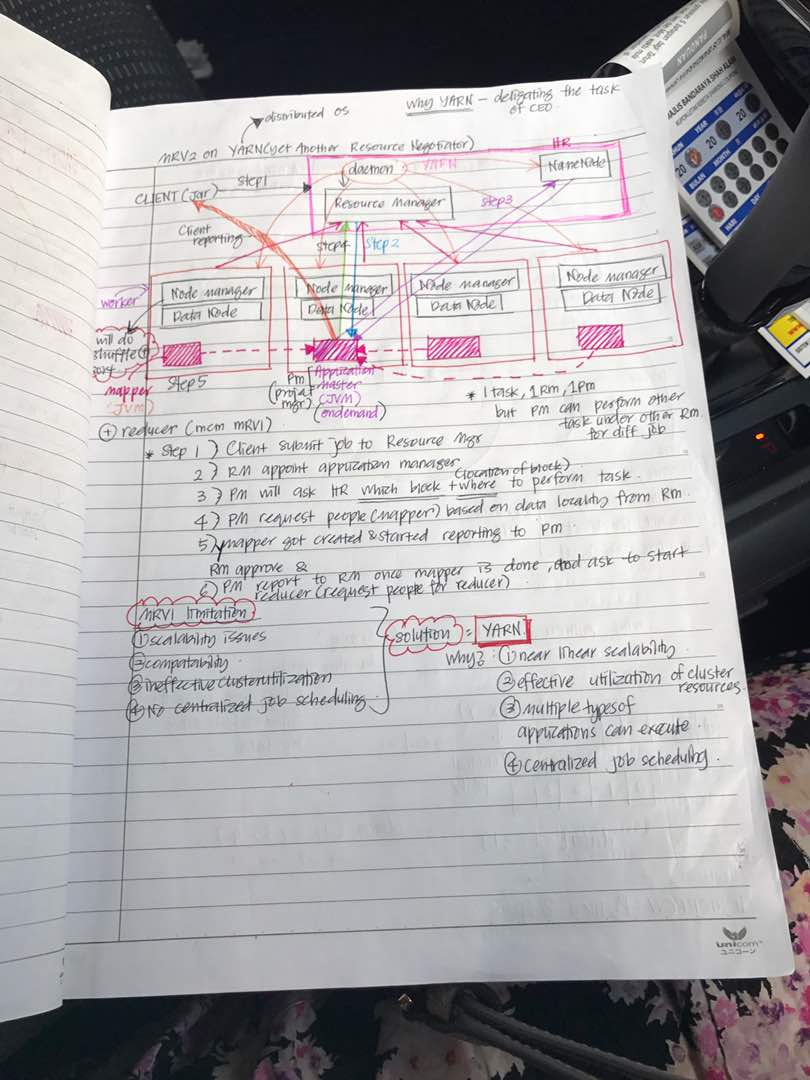 Why YARN - deligating the task
of CEO.
distributed OS
MRV2 on YARN (Yet Another Resource Negotiator)
HR
daemon YARN
NameNode
CLIENT (Jar) Step1
Resource Manager
Step3
Client
reporting
Step4 Step 2
worker
Node manager
Data Node
Node manager
Data Node
Node manager
Data Node
Node manager
Data Node
will do
shuffle &
sort
mapper
(JVM)
Step 5
PM
(project
mgr)
Application
master
(JVM)
(ondemand)
* 1 task, 1 RM, 1 PM
but PM can perform other
task under other RM
for diff job
+ reducer (mcm MRV1)
* Step 1) Client submit job to Resource Mgr
2) RM appoint application manager
(location of block)
3) PM will ask HR which block + where to perform task.
4) PM request people (mapper) based on data locality from RM.
5) mapper got created & started reporting to PM
RM approve &
6) PM report to RM once mapper is done, and ask to start
reducer (request people for reducer).
MRV1 limitation
① scalability issues
② compatability
③ ineffective cluster utilization
④ No centralized job scheduling.
solution = YARN.
Why? ① near linear scalability.
② effective utilization of cluster
resources.
③ multiple types of
applications can execute.
④ centralized job scheduling.
unicorn™
ユニコーン
MAJLIS BANDARAYA SHAH ALAM
PANDUAN
YEAR
20
20
BULAN
MONTH
HARI
DAY